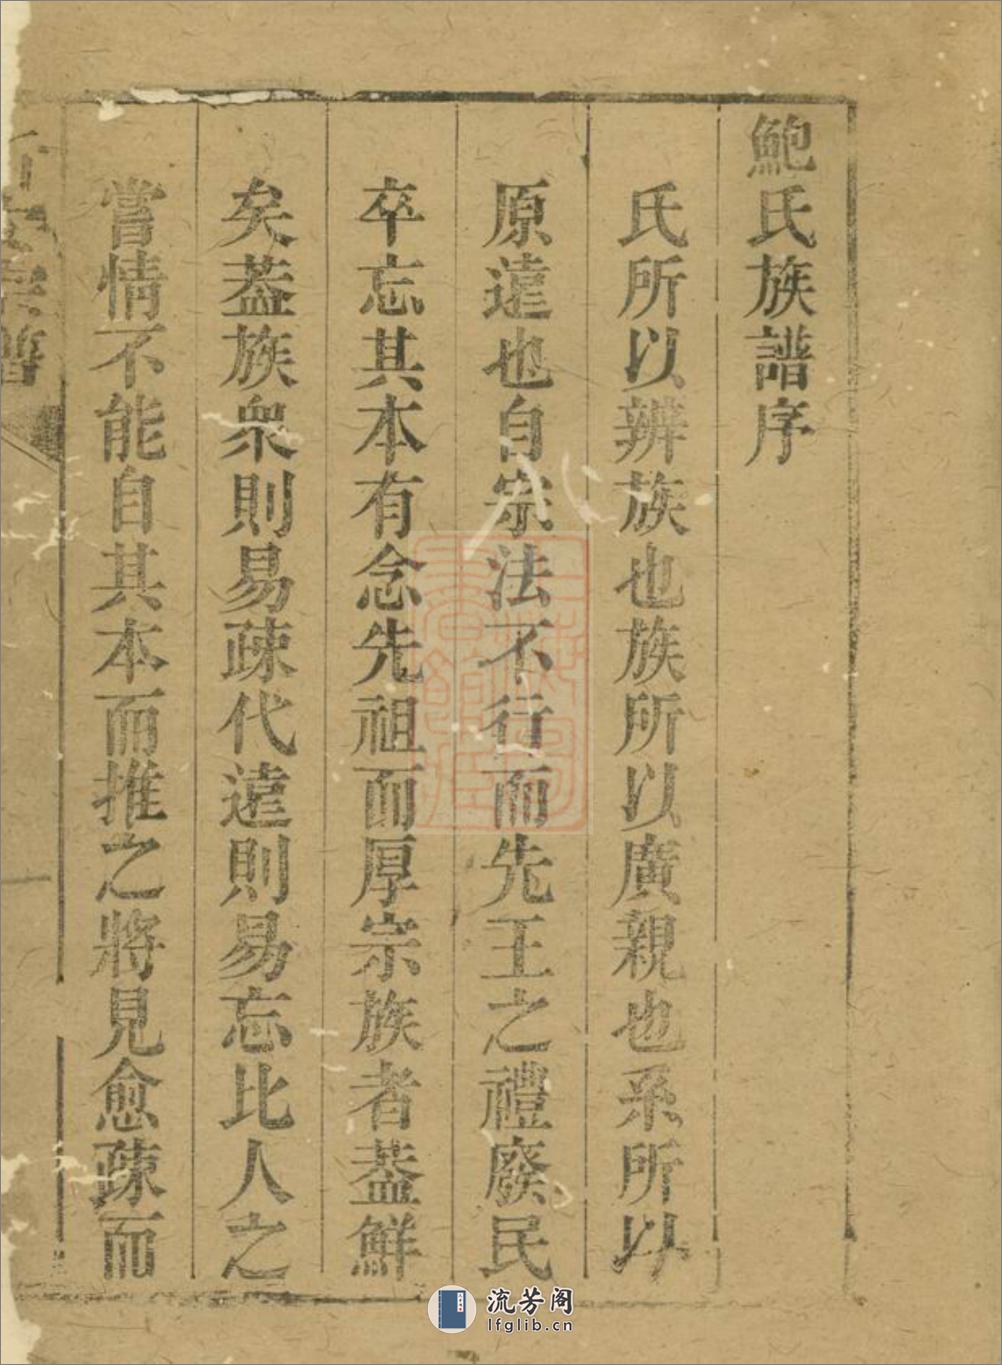 鮑氏族譜序
氏所以辨族也族所以廣親也系所以
原遠也自宗法不行而先王之禮廢民
卒忘其本有念先祖而厚宗族者葢鮮
矣葢族衆則易疎代遠則易忘比人之
嘗情不能自其本而推之將見愈疎而
流芳阁
lfglib.cn